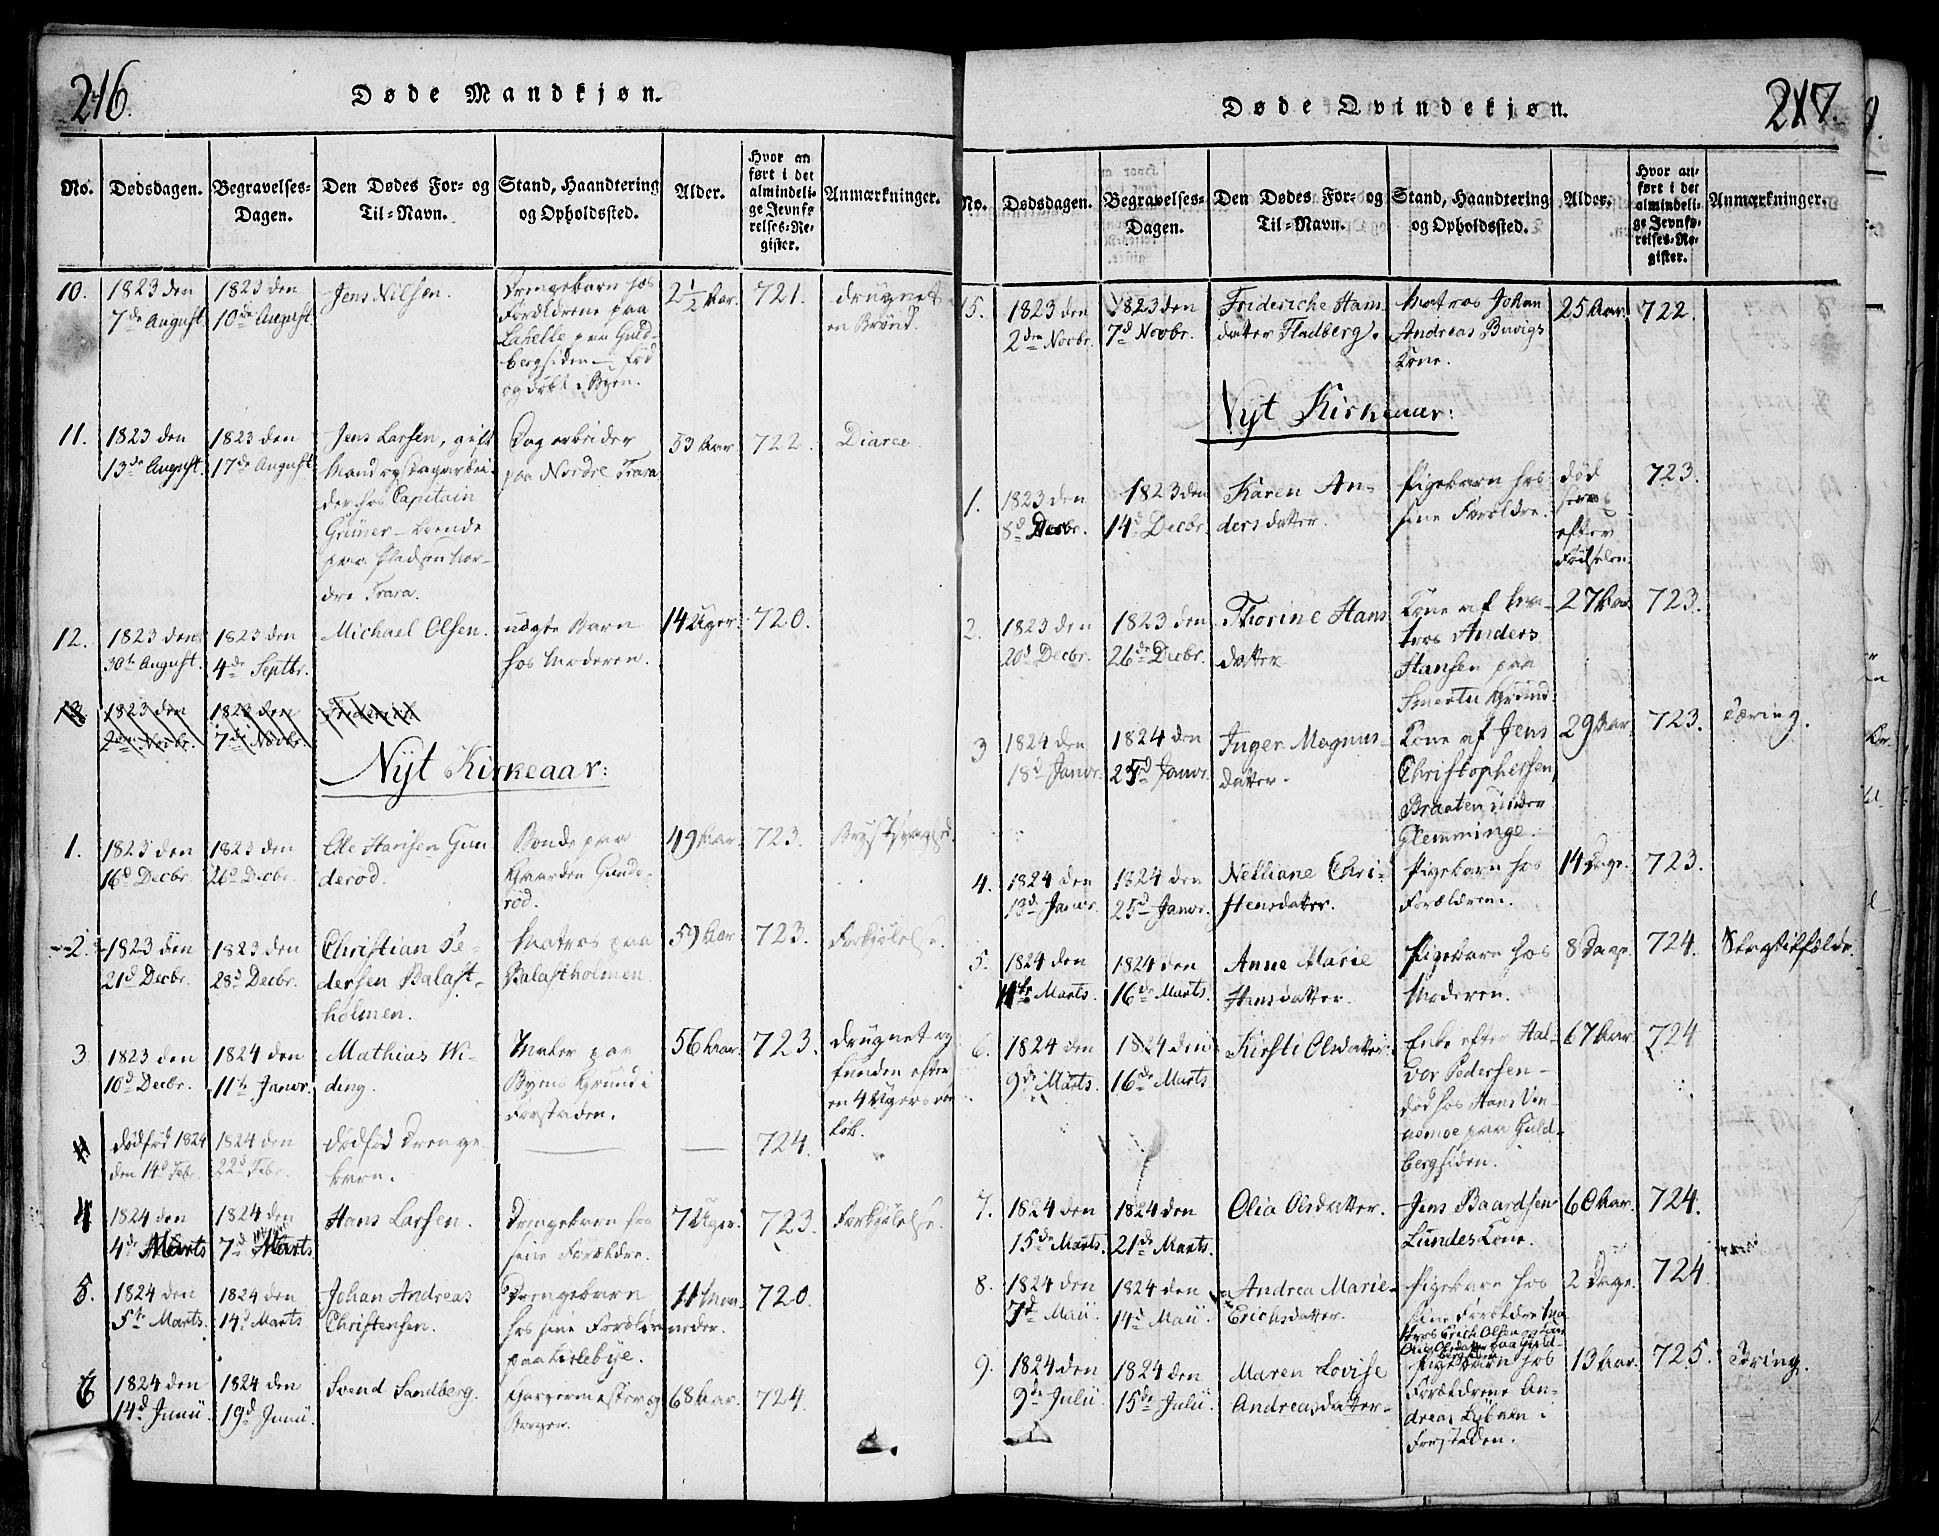 216.
Døde Mandkjøn.
No.
Dødsdagen.
Begravelses-
Dagen.
Den Dødes For- og
Til-Navn.
Stand, Haandtering
og Opholdssted.
Alder.
Hvor an
ført i det
almindeli-
ge Jevnfø
relses-Re-
gister.
Anmærkninger.
10.
1823 den
7de August
1823 den
10de August
Jens Nilsen.
Drengebarn hos
Forældrene paa
Labelle paa Guld-
bergsiden - fød
og døbt i Byen.
2 1/2 Aar.
721.
druknet
en Brønd.
11.
1823 den
13de August.
1823 den
17de August
Jens Larsen, gift
Mand og Dagarbei-
der hos Capitain
Grüner - boende
paa Pladsen Nor-
dre Trara.
Dagarbeider
paa Nordre Trara
53 Aar
722.
Diaree.
12.
1823 den
30te August.
1823 den
4de Septbr.
Michael Olsen.
uægte Barn
hos Moderen.
14 Uger.
720.
13
1823 den
2den Novbr.
1823 den
7de Novbr.
Friderich
Nyt Kirkeaar:
1.
1823 den
16d Decbr.
1823 den
26d Decbr.
Ole Hansen Gun
derod.
Bonde paa
Gaarden Gunde-
rød.
49 Aar
723.
Brystsvaghed.
2.
1823 den
21d Decbr.
1823 den
28d Decbr.
Christian Pe-
dersen Balast-
holmen.
Matros paa
Balastholmen.
59 Aar
723.
Forkjølelse.
3
1823 den
10d Decbr.
1824 den
11te Janvr.
Mathias Wi-
ding.
Maler paa
Byens Grund i
Forstaden.
56 Aar.
723.
druknet og
funden efter
en 4 Ugers for
løb.
4
dødfød 1824
den 14d Febr.
1824 den
22d Febr.
dødfød Drenge-
barn.
724.
4
1824 den
4de Marts
1824 den
7d Marts
Hans Larsen.
Drengebarn hos
sine Forældre.
7 Uger.
723.
Forkjølelse.
5.
1824 den
5te Marts.
1824 den
14d Marts
Johan Andreas
Christensen.
Drengebarn
hos sine Forældre
paa Kirkebye.
11 Maa-
neder.
720.
6
1824 den
14d Junii.
1824 den
19d Junii.
Svend Sandberg.
Garvermester og
Borger.
68 Aar.
724.
217.
Døde Qvindekjøn.
No.
Dødsdagen.
Begravelses-
Dagen.
Den Dødes For- og
Til-Navn.
Stand, Haandtering
og Opholdssted.
Alder.
Hvor an-
ført i det
almindeli-
ge Jevnfø-
relses-Re-
gister.
Anmærkninger.
15.
1823 den
2den Novbr.
1823 den
7d Novbr.
Frideriche Hans
datter Fladberg.
Matros Johan
Andreas Buvigs
Kone.
25 Aar.
722.
Nyt Kirkeaar:
1.
1823 den
8d Decbr.
1823 den
14d Decbr.
Karen An-
dersdatter.
Pigebarn hos
sine Forældre.
død
strax
efter
Fødselen.
723.
2.
1823 den
20d Decbr.
1823 den
26de Decbr.
Thorine Hans
datter
Kone af Ma-
tros Anders
Hansen paa
Smertu Grund
27 Aar
723.
3
1824 den
18d Janvr.
1824 den
25d Janvr.
Inger Magnus-
datter.
Kone af Jens
Christophersen,
Braaten under
Glemminge.
29 Aar
723.
Tæring.
4.
1824 den
13d Janvr.
1824 den
25d Janvr.
Nelliane Chri-
stensdatter.
Pigebarn hos
Forældrene.
14 Dage.
723.
5.
1824 den
11te Marts.
1824 den
16de Marts.
Anne Marie
Hansdatter.
Pigebarn hos
Moderen.
8 Dage
724.
Slagtilfælde.
6.
1824 den
9de Marts.
1824 den
16de Marts
Kirsti Olsdatter.
Enke efter Hal-
vor Pedersen -
død hos Hans Vin-
nemoe paa Guld-
bergsiden.
67 Aar
724
7.
1824 den
15de Marts.
1824 den
21de Marts.
Olia Olsdatter.
Jens Baardsen
Lundes Kone.
60 Aar.
724.
8.
1824 den
7d Maii.
1824 den
14d Maii.
Andrea Marie
Erichsdatter.
Pigebarn hos
sine Forældre Ma-
tros Erich Olsen og Kone
Olia Olsdatter paa Guld-
bergsiden
2 Dage.
724.
9.
1824 den
9de Julii
1824 den
15de Julii
Maren Lovise
Andreasdatter
Pigebarn hos
Forældrene An-
dreas Lybæk i
Forstaden.
13 Aar.
725.
Tæring.